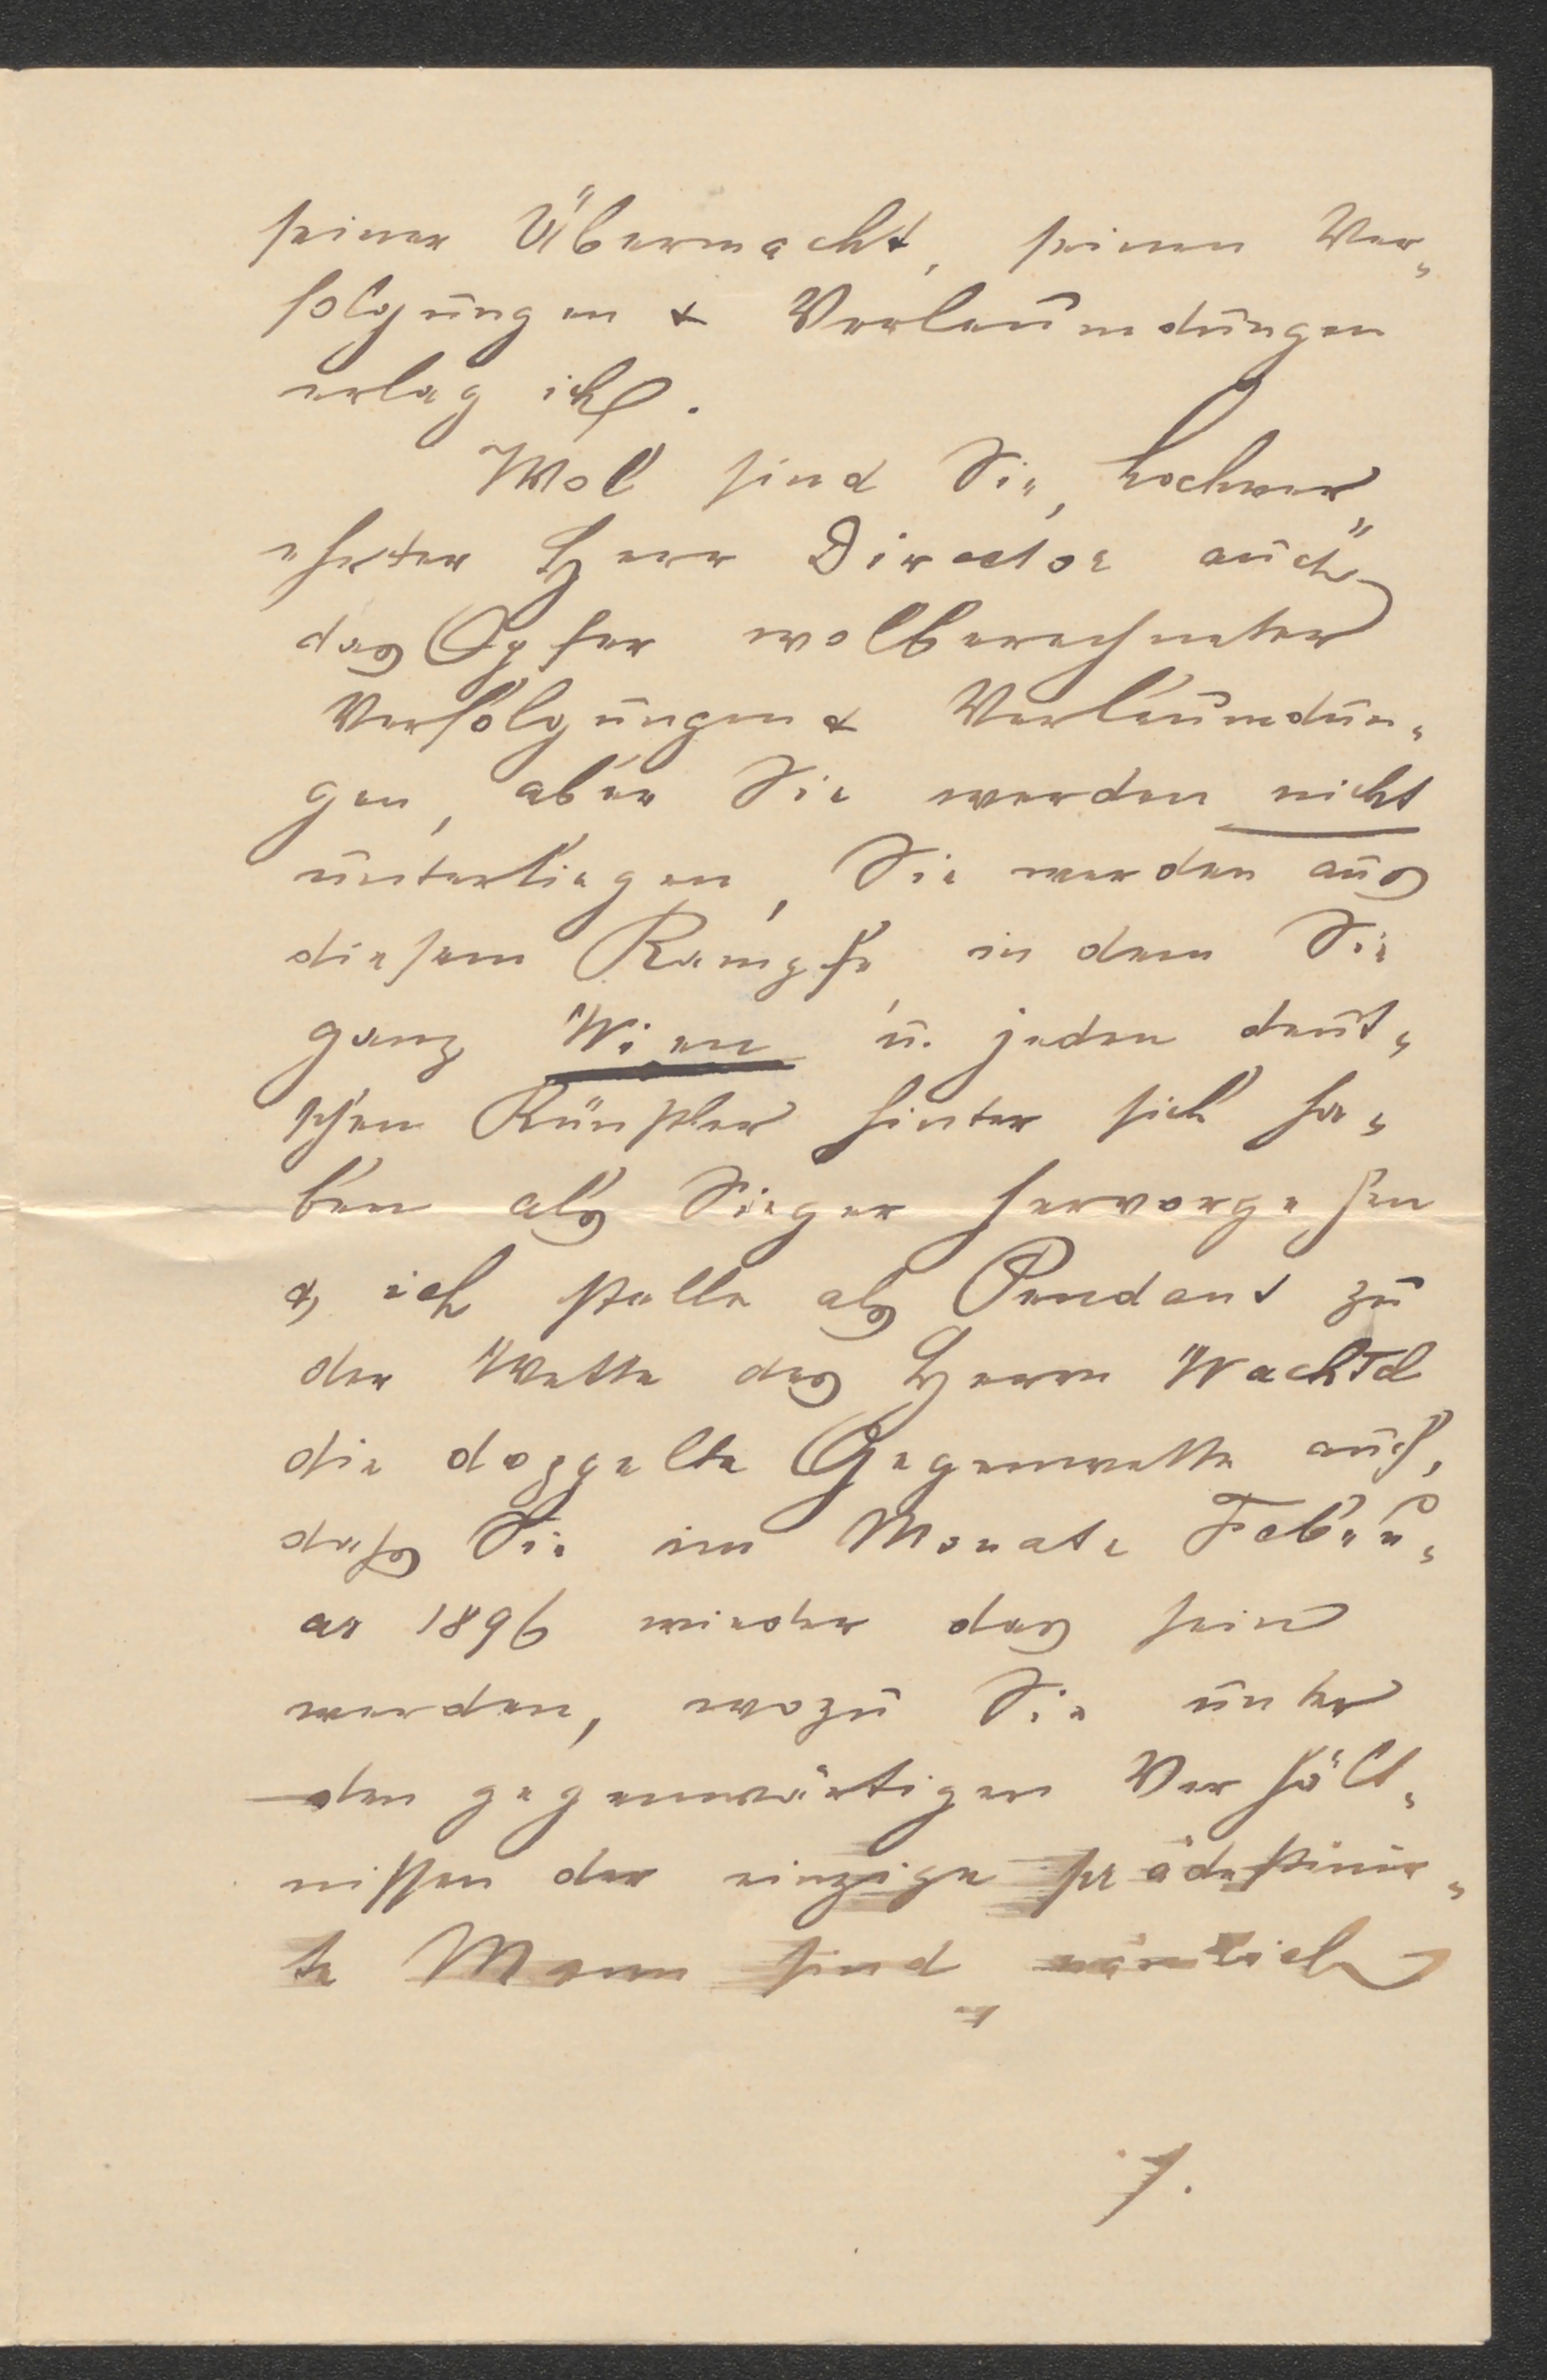 seiner Übermacht, seinen Ver-
folgungen & Verleumdungen
erlag ich.
Wol sind Sie, hochver-
ehrter Herr Director auch
das Opfer wolberechneter
Verfolgungen & Verleumdun-
gen, aber Sie werden nicht
unterliegen, Sie werden aus
diesem Kampfe, in dem Sie
ganz Wien u. jeden deut-
schen Künstler hinter sich ha-
ben als Sieger hervorgehen
& ich stelle als Pendant zu
der Wette des Herrn Wachtl
die doppelte Gegenwette auf,
daß Sie im Monate Febru-
ar 1896 wieder das sein
werden, wozu Sie unter
den gegenwärtigen Verhält-
nissen der einzige prädestinir-
te Mann sind, nämlich
./.